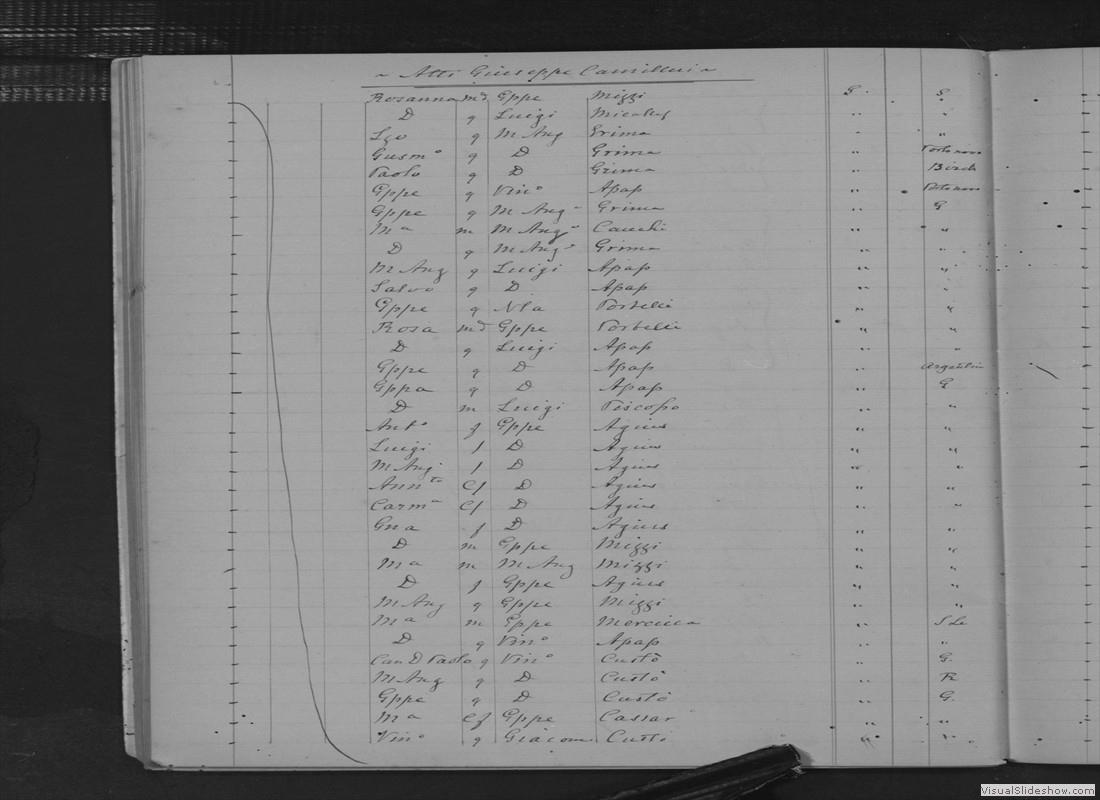 ~ Atti Giuseppe Camilleri ~
Rosanna md Gppe Mizzi G. G.
D q Luigi Micallef " "
Lzo q M Ang Grima " "
Gusmo q D Grima "
Paolo q D Grima "
Gppe q Vinº Apap "
Gppe q M Ang Grima " G
Ma m M Ang Cauchi " "
D q M Ang Grima " "
M Ang q Luigi Apap " "
Salvo q D Apap " "
Gppe q Nla Portelli " "
Rosa md Gppe Portelli " "
D q Luigi Apap " "
Gppe q D Apap "
Gppa q D Apap " G
D m Luigi Piscopo " "
Antº f Gppe Agius " "
Luigi f D Agius " "
M Ang f D Agius " "
Annta Cf D Agius " "
Carmª Cf D Agius " "
Gna f D Agius " "
D m Gppe Mizzi " "
Ma m M Ang Mizzi " "
D f Gppe Agius " "
M Ang q Gppe Mizzi " "
Ma m Gppe Mercieca "
D q Vinº Apap " "
Can D Paolo q Vinº Custò " G.
M Ang q D Custò " R
Gppe q D Custò " G.
Ma Cf Gppe Cassar " "
Vinº q Giacom Custò " "
VisualSlideshow.com